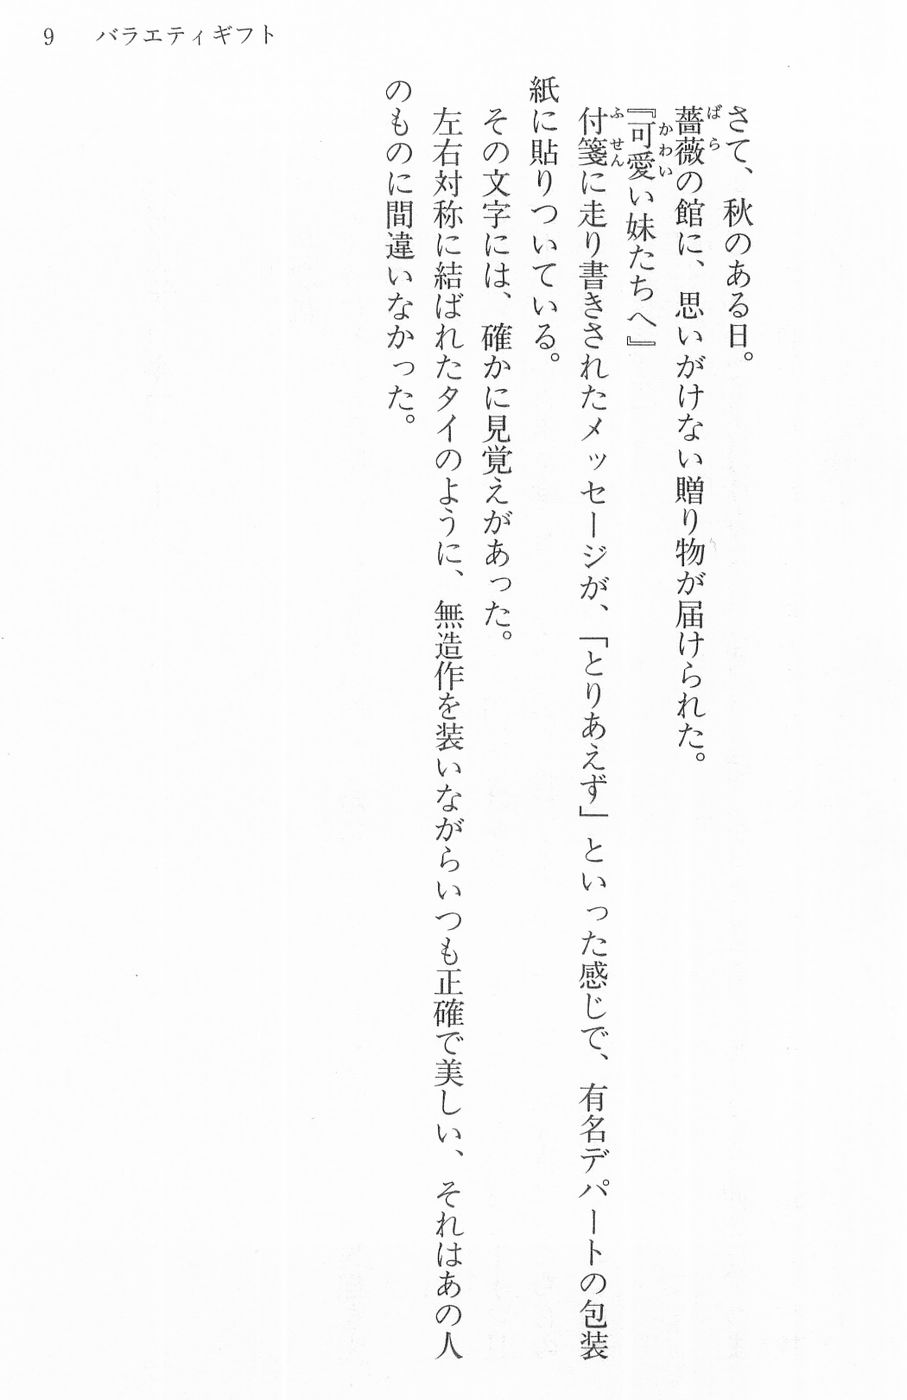 9 バラエティギフト
さて、秋のある日。
薔薇の館に、思いがけない贈り物が届けられた。
『可愛い妹たちへ』
付箋に走り書きされたメッセージが、「とりあえず」といった感じで、有名デパートの包装
紙に貼りついている。
その文字には、確かに見覚えがあった。
左右対称に結ばれたタイのように、無造作を装いながらいつも正確で美しい、それはあの人
のものに間違いなかった。